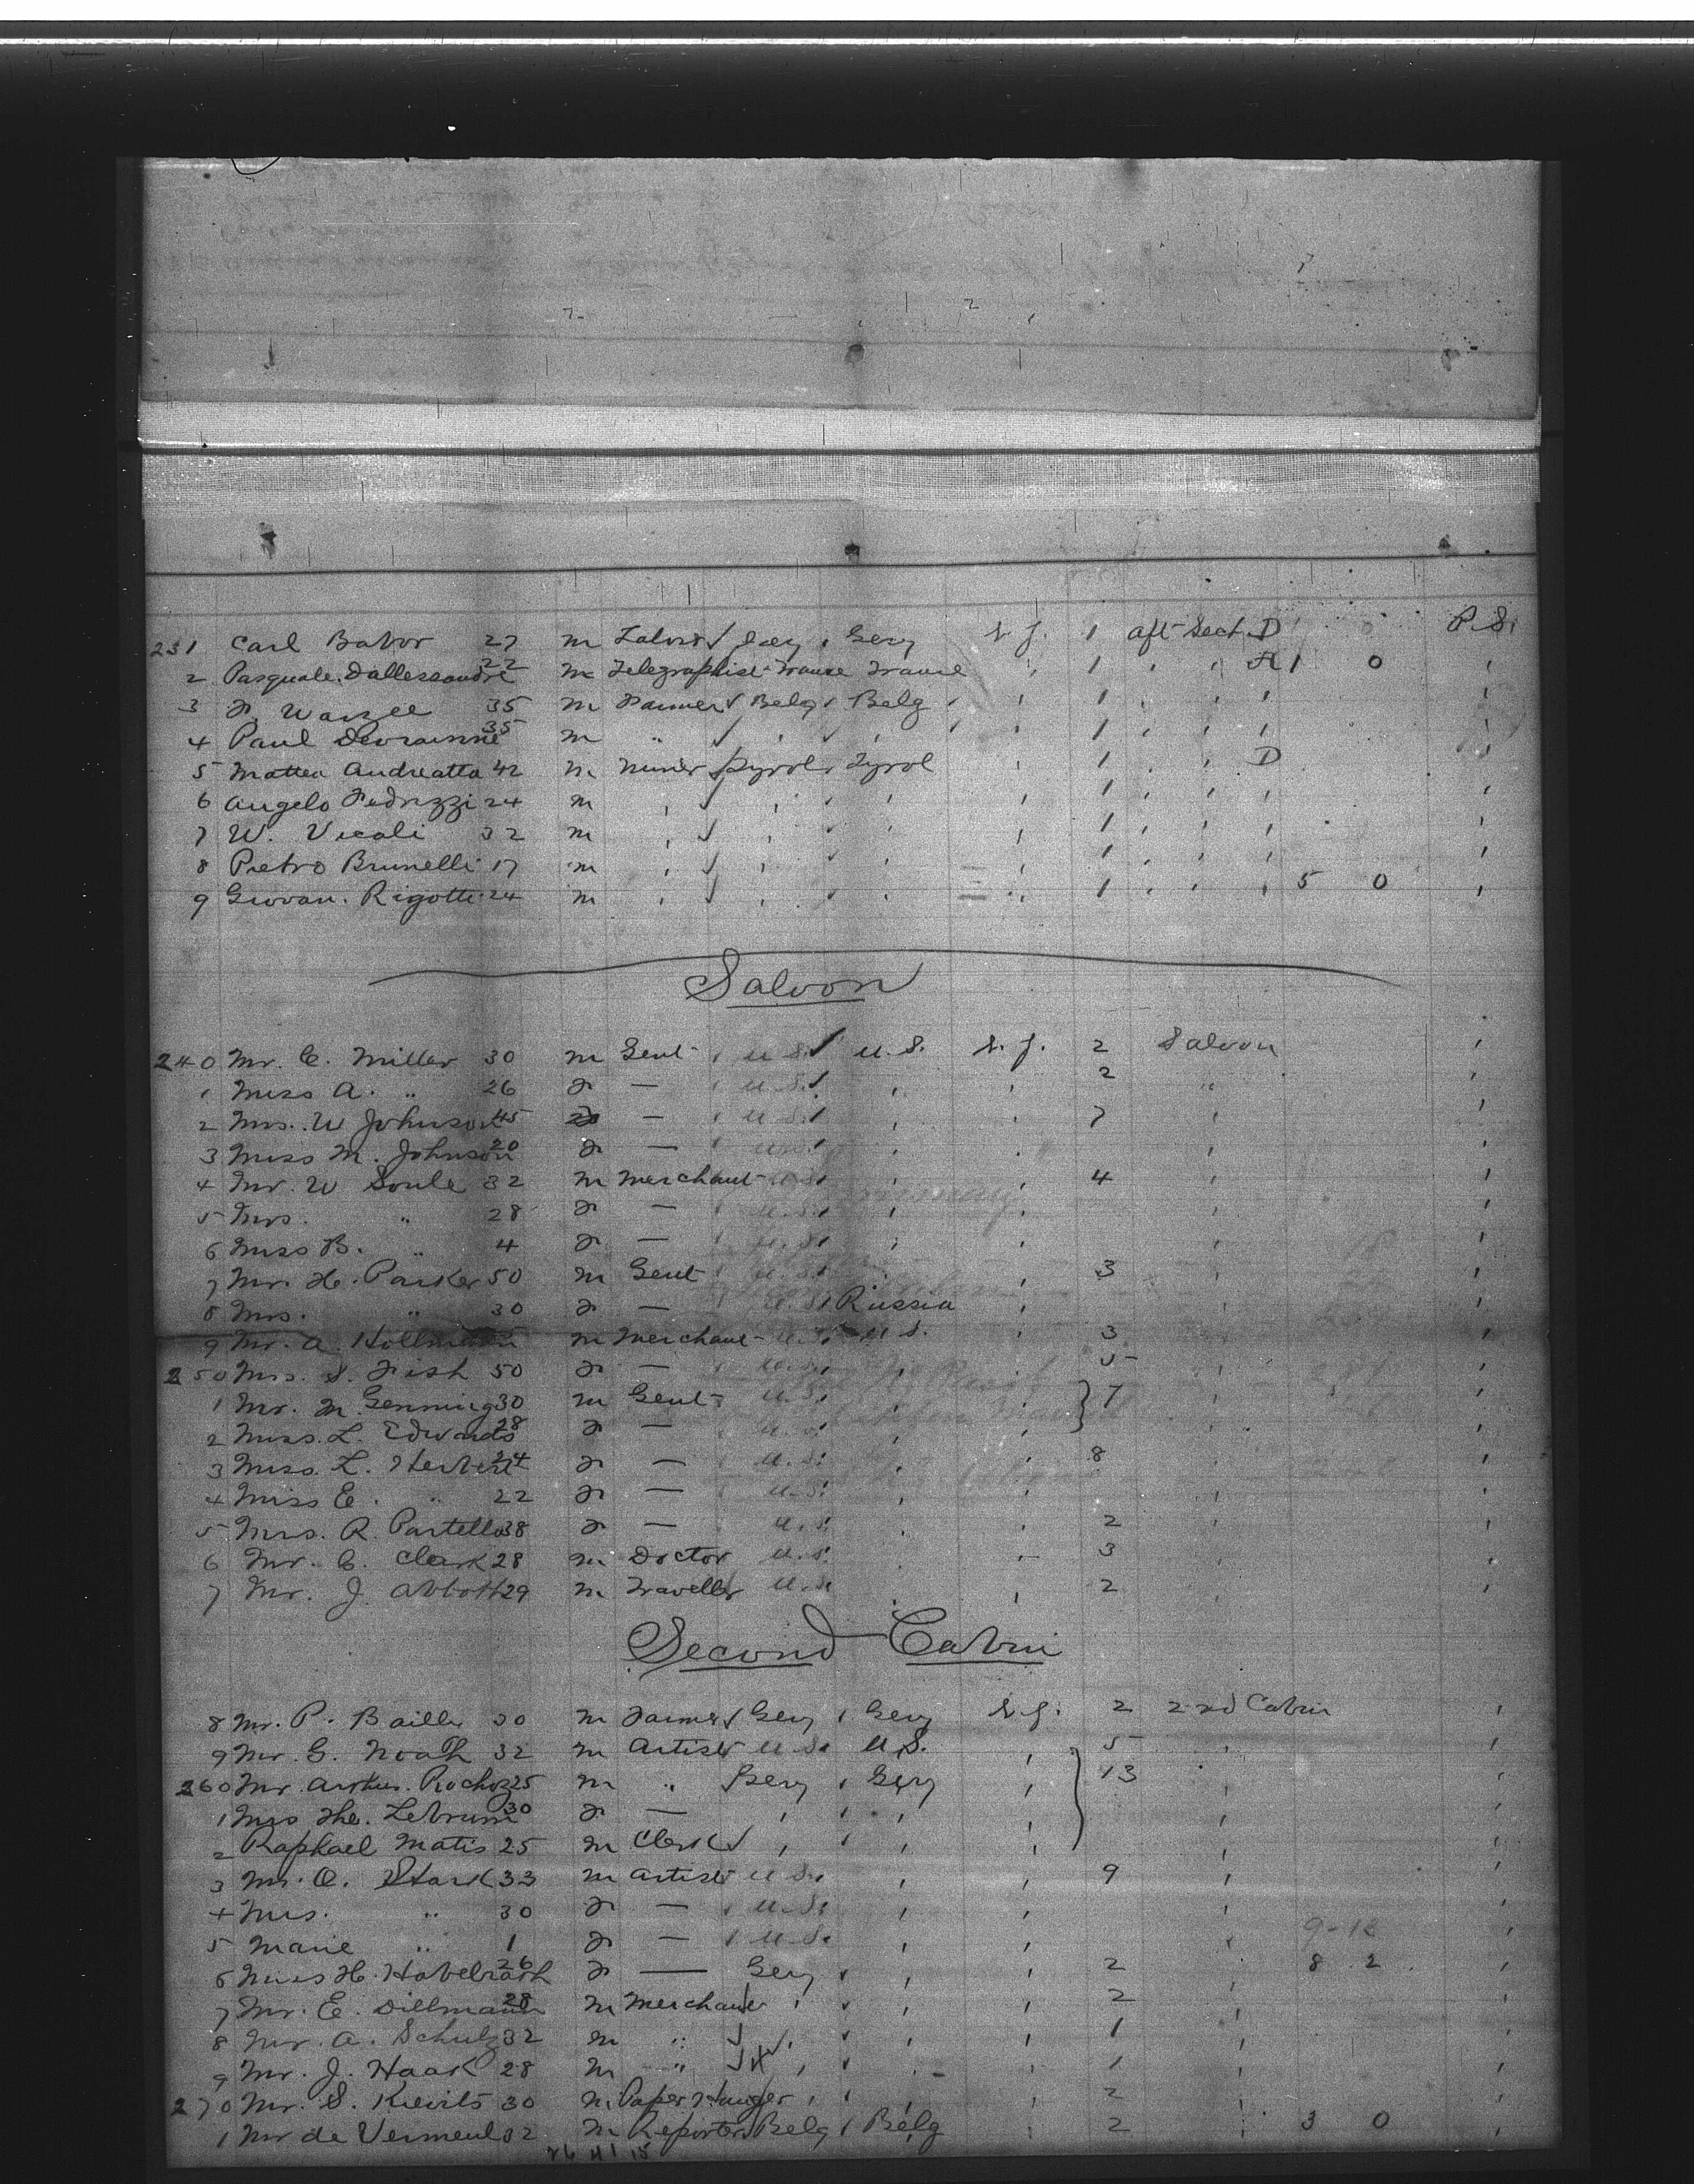 231 Carl Babor 27 m Labor Gery Gery N.Y. 1 aft Sect. D P.S.
2 Pasquale Dallessandre 22 m Telegraphist France France 1 A 1 0
3 F. Warzee 35 m Farmer Belg Belg 1
4 Paul 35 m " 1
5 Mattea Andreatta 42 m Miner Tyrol Tyrol 1 D
6 Angelo Fedrizzi 24 m 1
7 W. Vicali 32 m 1
8 Pietro Brunelli 17 m 1
9 Giovan. Rigotti 24 m 1 5 0
Saloon
240 Mr. C. Miller 30 m Gent U.S. U.S. N.Y. 2 Saloon
1 Miss A. " 26 F — U.S. 2 "
2 Mrs. W Johnson 45 F — U.S. 7
3 Miss M. Johnson 20 F — U.S.
4 Mr. W Soule 32 m Merchant U.S. 4
5 Mrs. " 28 F — U.S.
6 Miss B. " 4 F — U.S.
7 Mr. H. Parker 50 m Gent U.S. 3
8 Mrs. " 30 F — U.S. Russia
9 Mr. A. Hollmann m Merchant U.S. U.S. 3
250 Mrs. S. Fish 50 F — U.S. 5
1 Mr. M Genning 30 m Gent U.S. 7
2 Miss. L. Edwards 28 F — U.S.
3 Miss. L. Herbert 24 F — U.S. 8
4 Miss E. " 22 F — U.S.
5 Mrs. R. Partello 38 F — U.S. 2
6 Mr. C. Clark 28 m Doctor U.S. 3
7 Mr. J. Abbott 29 m Traveller U.S. 2
Second Cabin
8 Mr. P. Bailly 30 m Farmer Gery Gery N.Y. 2 2nd Cabin
9 Mr. G. Noah 32 m Artist U.S. U.S. 5
260 Mr. Arthur. Rochoz 25 m " Gery Gery 13
1 Mrs The. Lebrun 30 F —
2 Raphael Matis 25 m Clerk
3 Mr. O. Stark 33 m Artist U.S. 9
4 Mrs. " 30 F — U.S.
5 Marie " 1 F — U.S.
6 Miss H. Habelrath 26 F — Gery 2 8 2
7 Mr. E. Dillmann 28 m Merchant 2
8 Mr. A. Schulz 32 m " 1
9 Mr. J. Haak 28 m " 1
270 Mr. S. Kievits 30 m Paper Hanger 2
1 Mr de Vermeul 32 m Reporter Belg Belg 2 3 0